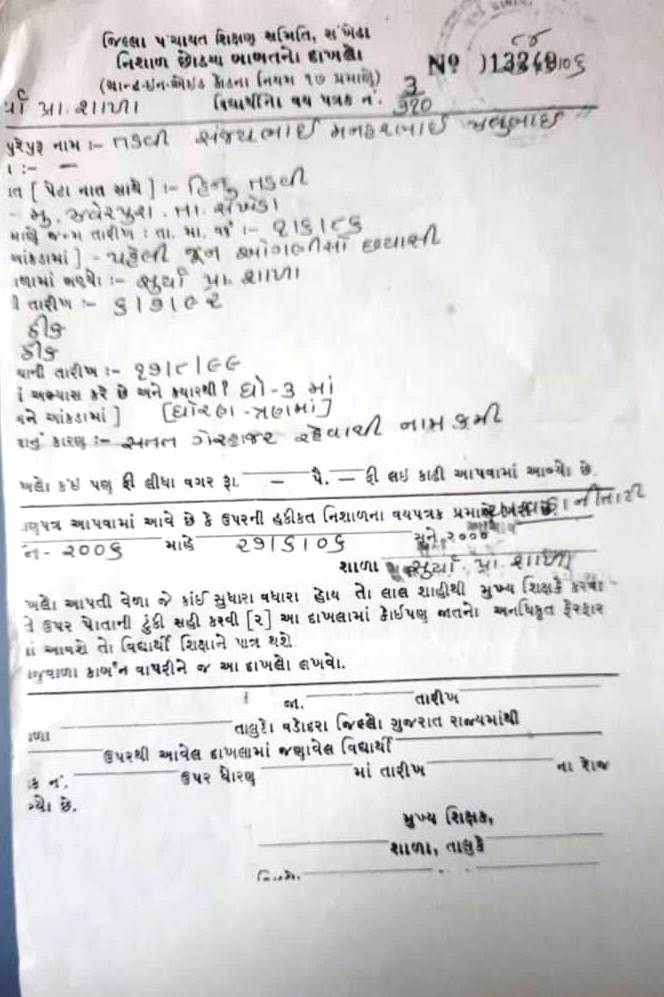 જિલ્લા પંચાયત શિક્ષણ સમિતિ, સંખેડા
નિશાળ છોડ્યા બાબતનો દાખલો
(ગ્રાન્ટ-ઇન-એઇડ કોડના નિયમ ૧૭ પ્રમાણે) Nº
પ્રા. શાળા વિદ્યાર્થીના વય પત્રક નં. 3/૩૨૦
નામ :- તડવી સંજયભાઈ મનહરભાઈ
:- —
[ પેટા નાત સાથે ] :- હિન્દુ તડવી
- મુ. ઝવેરપુરા. તા. સંખેડા
જન્મ તારીખ : તા. મા. વર્ષ :- ૧/૬/૮૬
આંકડામાં ] - પહેલી જૂન ઓગણીસો છયાસી
:- સુર્યા પ્રા. શાળા
તારીખ :- ૬/૭/૯૨
ઠીક
ઠીક
તારીખ :- ૧૭/૮/૯૯
અભ્યાસ કરે છે અને ક્યારથી? ધો-૩ માં
આંકડામાં ] [ધોરણ-ત્રણમાં]
કારણ :- સતત ગેરહાજર રહેવાથી નામ કમી
કંઇ પણ ફી લીધા વગર રૂા. — પૈ. — ફી લઇ કાઢી આપવામાં આવ્યો છે.
આપવામાં આવે છે કે ઉપરની હકીકત નિશાળના વયપત્રક પ્રમાણે
૨૦૦૬ માહે ૨૧/૬/૦૬ સને ૨૦૦૦
શાળા સુર્યા પ્રા. શાળા
આપતી વેળા જે કાંઈ સુધારા વધારા હોય તો લાલ શાહીથી મુખ્ય શિક્ષકે કરવા
ઉપર પોતાની ટુંકી સહી કરવી [૨] આ દાખલામાં કોઈપણ જાતનો અનધિકૃત ફેરફાર
આવશે તો વિદ્યાર્થી શિક્ષાને પાત્ર થશે.
કાર્બન વાપરીને જ આ દાખલો લખવો.
જા. તારીખ
તાલુકો વડોદરા જિલ્લો ગુજરાત રાજ્યમાંથી
ઉપરથી આવેલ દાખલામાં જણાવેલ વિદ્યાર્થી
નં. ઉપર ધોરણ માં તારીખ ના રોજ
છે.
મુખ્ય શિક્ષક,
શાળા, તાલુકે